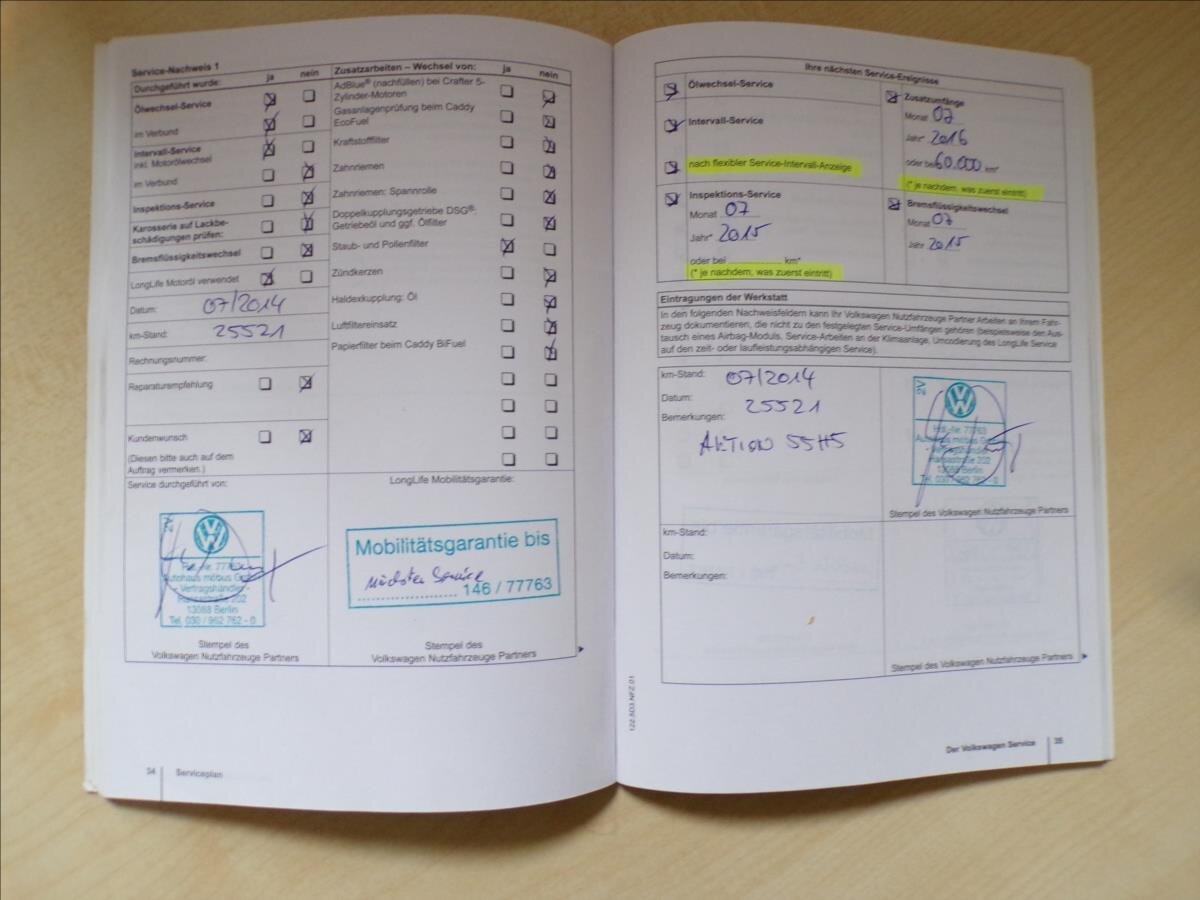 Service-Nachweis 1
Durchgeführt wurde: ja nein
Ölwechsel-Service
im Verbund
Intervall-Service
inkl. Motorölwechsel
im Verbund
Inspektions-Service
Karosserie auf Lackbe-
schädigungen prüfen:
Bremsflüssigkeitswechsel
LongLife Motoröl verwendet
Datum: 07/2014
km-Stand: 25521
Rechnungsnummer:
Reparaturempfehlung
Kundenwunsch
(Diesen bitte auch auf dem
Auftrag vermerken.)
Zusatzarbeiten – Wechsel von: ja nein
AdBlue® (nachfüllen) bei Crafter 5-
Zylinder-Motoren
Gasanlagenprüfung beim Caddy
EcoFuel
Kraftstofffilter
Zahnriemen
Zahnriemen: Spannrolle
Doppelkupplungsgetriebe DSG®:
Getriebeöl und ggf. Ölfilter
Staub- und Pollenfilter
Zündkerzen
Haldexkupplung: Öl
Luftfiltereinsatz
Papierfilter beim Caddy BiFuel
Service durchgeführt von:
Autohaus möbus
- Vertragshändler -
Hansastraße 202
13088 Berlin
Tel. 030 / 962 762 - 0
Stempel des
Volkswagen Nutzfahrzeuge Partners
LongLife Mobilitätsgarantie:
Mobilitätsgarantie bis
nächsten Service
146 / 77763
Stempel des
Volkswagen Nutzfahrzeuge Partners
34 Serviceplan
Ihre nächsten Service-Ereignisse
Ölwechsel-Service
Intervall-Service
nach flexibler Service-Intervall-Anzeige
Inspektions-Service
Monat 07
Jahr* 2015
oder bei km*
(* je nachdem, was zuerst eintritt)
Zusatzumfänge
Monat 07
Jahr* 2016
oder bei 60.000 km*
(* je nachdem, was zuerst eintritt)
Bremsflüssigkeitswechsel
Monat 07
Jahr 2015
Eintragungen der Werkstatt
In den folgenden Nachweisfeldern kann Ihr Volkswagen Nutzfahrzeuge Partner Arbeiten an Ihrem Fahr-
zeug dokumentieren, die nicht zu den festgelegten Service-Umfängen gehören (beispielsweise den Aus-
tausch eines Airbag-Moduls, Service-Arbeiten an der Klimaanlage, Umcodierung des LongLife Service
auf den zeit- oder laufleistungsabhängigen Service).
km-Stand: 07/2014
Datum: 25521
Bemerkungen:
AKTION 55H5
2V
Hdl.-Nr. 77763
Autohaus möbus
- Vertragshändler
Hansastraße 202
13088 Berlin
Tel. 030 / 962 762 - 0
Stempel des Volkswagen Nutzfahrzeuge Partners
km-Stand:
Datum:
Bemerkungen:
Stempel des Volkswagen Nutzfahrzeuge Partners
122.5D3.NFZ.01
Der Volkswagen Service 35